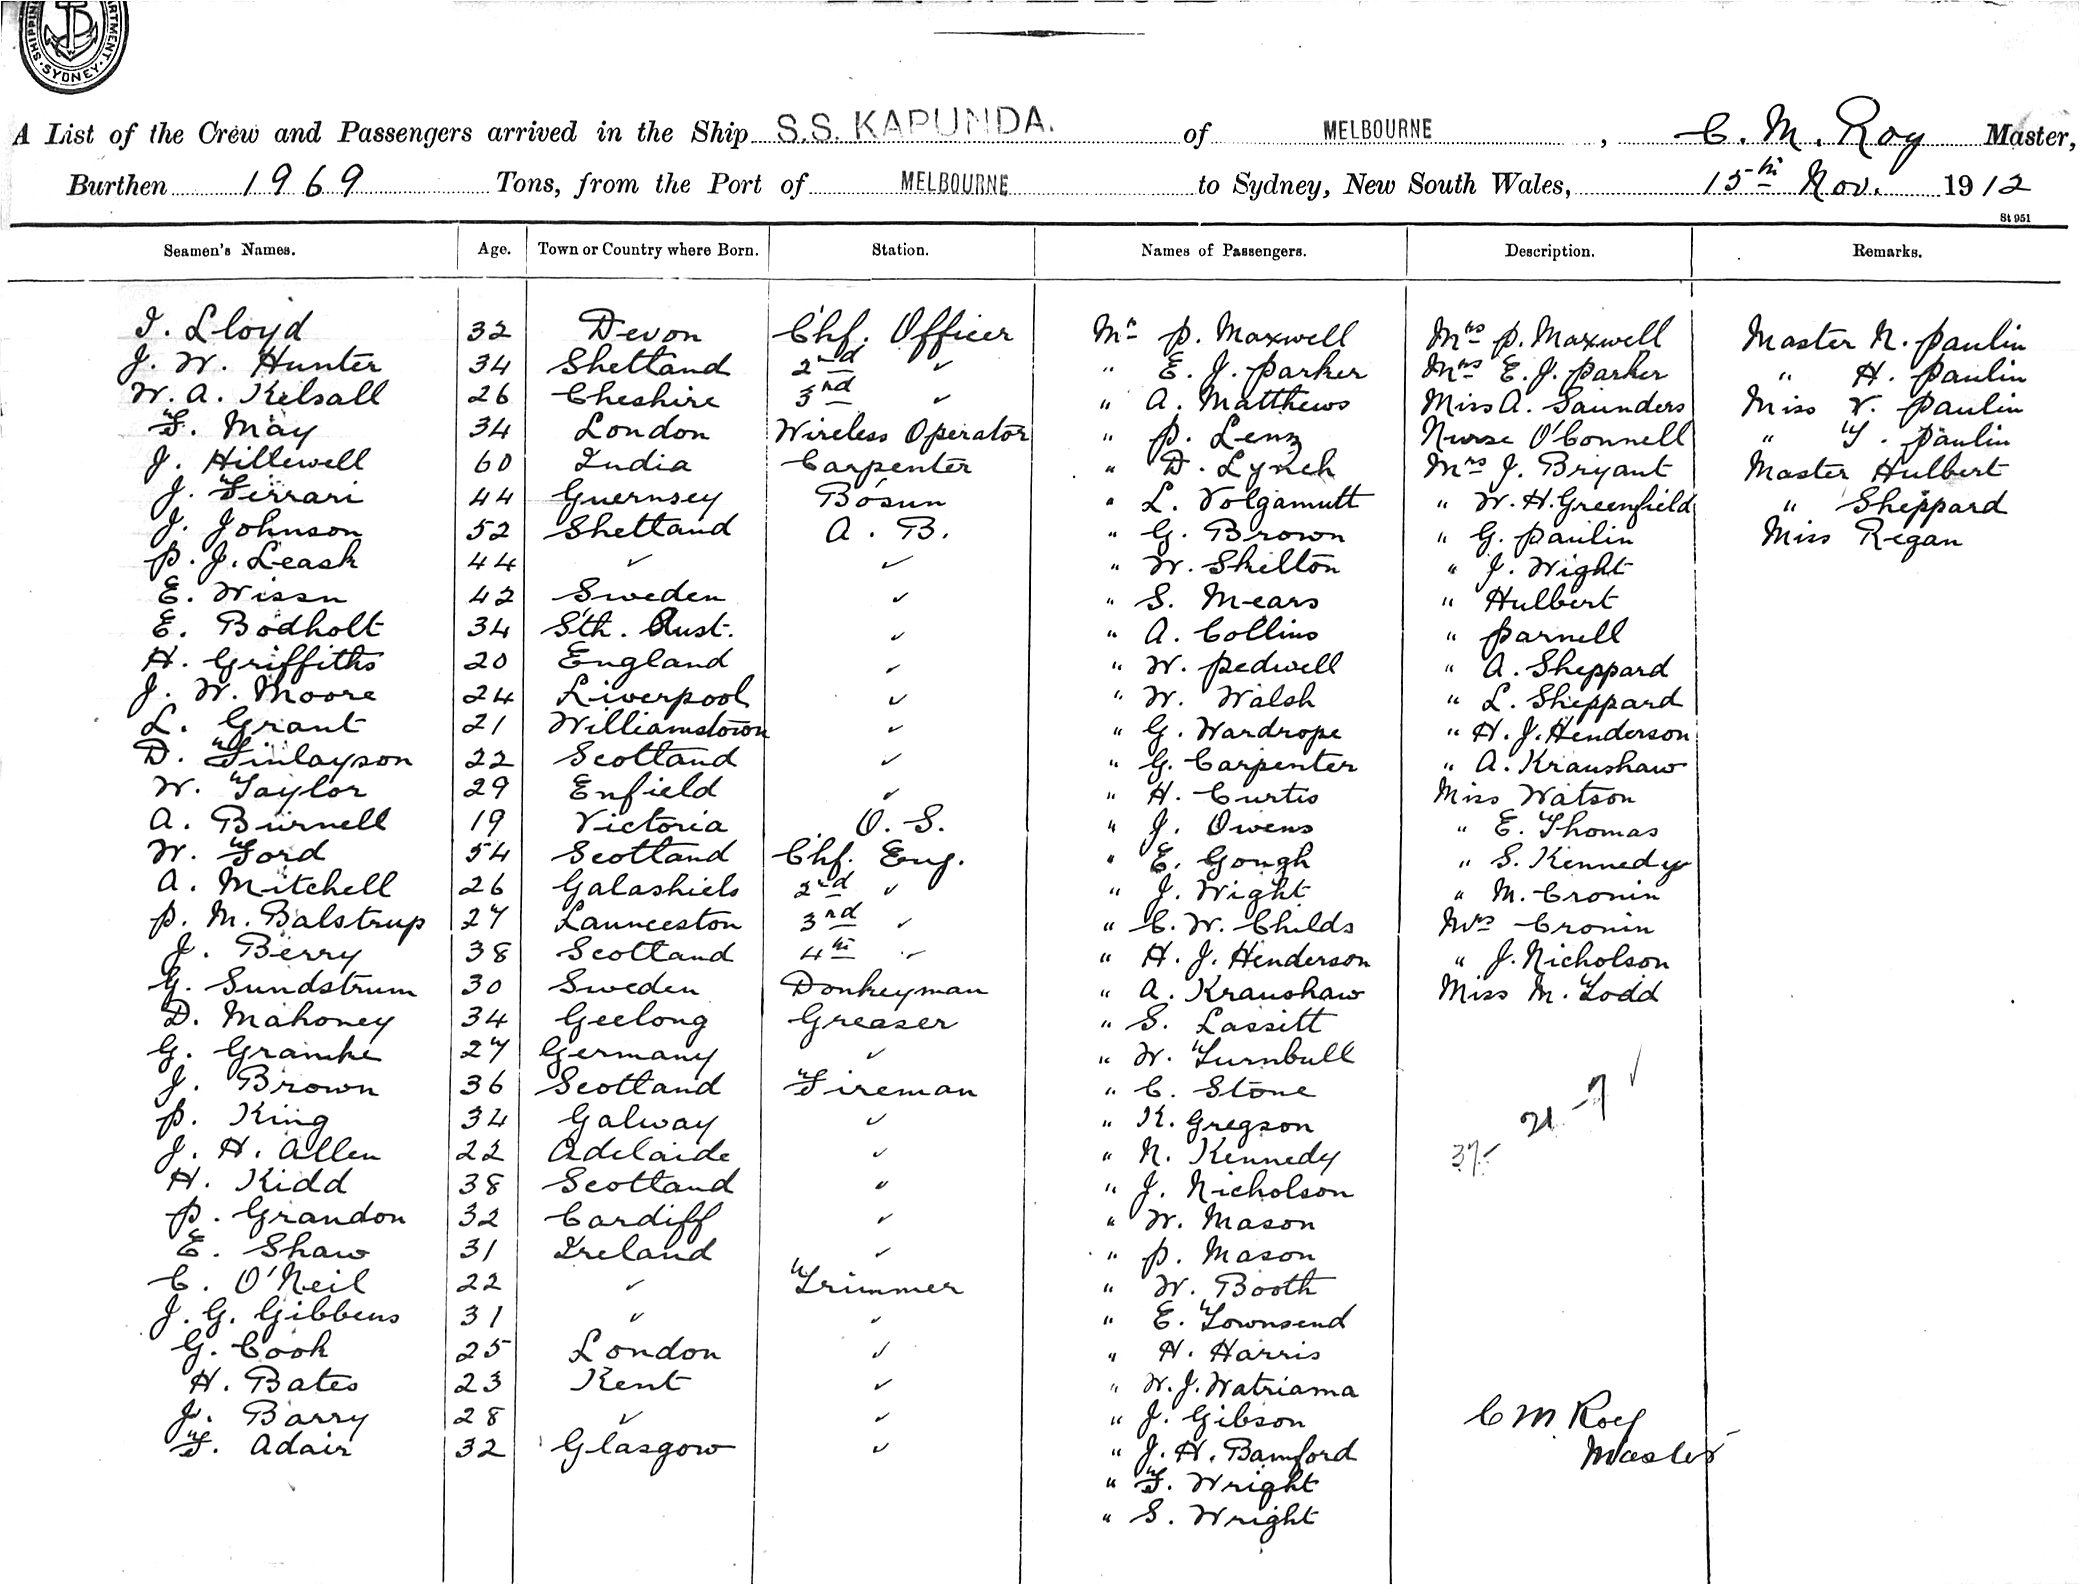 SHIPPING DEPARTMENT · SYDNEY ·
A List of the Crew and Passengers arrived in the Ship S.S. KAPUNDA. of MELBOURNE, C. M. Roy Master,
Burthen 1969 Tons, from the Port of MELBOURNE to Sydney, New South Wales, 15th Nov. 1912
St 951
Seamen's Names. Age. Town or Country where Born. Station. Names of Passengers. Description. Remarks.
I. Lloyd 32 Devon Chf. Officer Mr P. Maxwell Mrs P. Maxwell Master N. Paulin
J. W. Hunter 34 Shetland 2nd " " E. J. Parker Mrs E. J. Parker " H. Paulin
W. A. Kelsall 26 Cheshire 3rd " " A. Matthews Miss A. Saunders Miss V. Paulin
F. May 34 London Wireless Operator " P. Lenz Nurse O'Connell " T. Paulin
J. Hillewell 60 India Carpenter " D. Lynch Mrs J. Bryant Master Hulbert
J. Ferrari 44 Guernsey Bosun " L. Volgamutt " W. H. Greenfield " Sheppard
J. Johnson 52 Shetland A. B. " G. Brown " G. Paulin Miss Regan
P. J. Leask 44 " " " W. Shilton " J. Wight
E. Wissn 42 Sweden " " S. Mears " Hulbert
E. Bodholt 34 Sth. Aust. " " A. Collins " Parnell
H. Griffiths 20 England " " W. Pedwell " A. Sheppard
J. W. Moore 24 Liverpool " " W. Walsh " L. Sheppard
L. Grant 21 Williamstown " " G. Wardrope " H. J. Henderson
D. Finlayson 22 Scotland " " G. Carpenter " A. Kranshaw
W. Taylor 29 Enfield " " H. Curtis Miss Watson
A. Burnell 19 Victoria O. S. " J. Owens " E. Thomas
W. Ford 54 Scotland Chf. Eng. " E. Gough " S. Kennedy
A. Mitchell 26 Galashiels 2nd " " J. Wight " M. Cronin
P. M. Balstrup 27 Launceston 3rd " " C. W. Childs Mrs Cronin
J. Berry 38 Scotland 4th " " H. J. Henderson " J. Nicholson
G. Sundstrum 30 Sweden Donkeyman " A. Kranshaw Miss M. Todd
D. Mahoney 34 Geelong Greaser " S. Lassitt
G. Gramke 27 Germany " " W. Turnbull
J. Brown 36 Scotland Fireman " C. Stone
P. King 34 Galway " " K. Gregson
J. H. Allen 22 Adelaide " " N. Kennedy 37- 21 - 7 ✓
H. Kidd 38 Scotland " " J. Nicholson
P. Grandon 32 Cardiff " " W. Mason
E. Shaw 31 Ireland " " P. Mason
C. O'Neil 22 " Trimmer " W. Booth
J. G. Gibbens 31 " " " E. Townsend
G. Cook 25 London " " H. Harris
H. Bates 23 Kent " " W. J. Watriama
J. Barry 28 " " " J. Gibson C M Roy
F. Adair 32 Glasgow " " J. H. Bamford Master
" F. Wright
" S. Wright